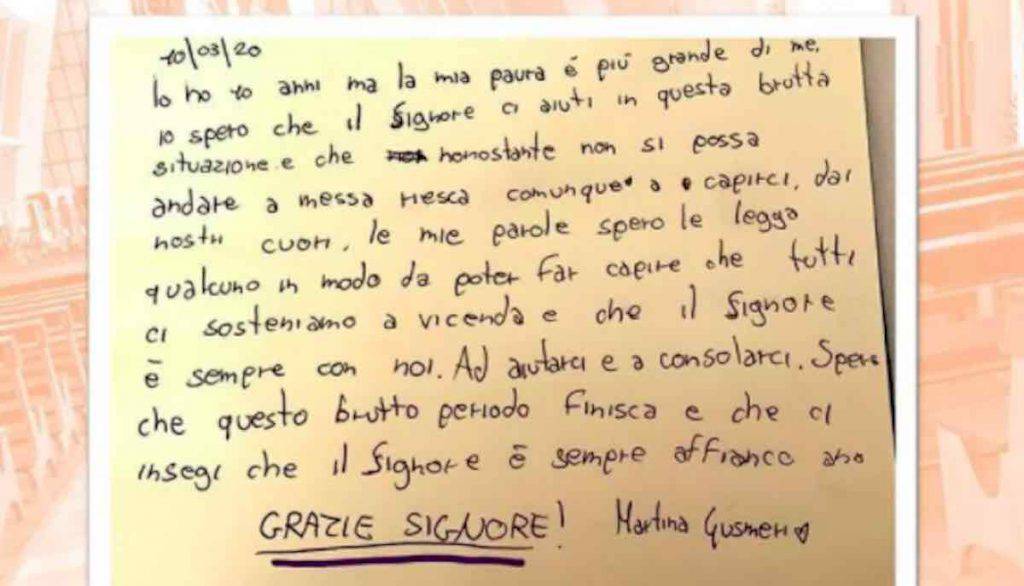 10/03/20
Io ho 10 anni ma la mia paura é più grande di me.
io spero che il Signore ci aiuti in questa brutta
situazione e che honostante non si possa
andare a messa riesca comunque a capirci, dai
nostri cuori, le mie parole spero le legga
qualcuno in modo da poter far capire che tutti
ci sosteniamo a vicenda e che il Signore
è sempre con noi. Ad aiutarci e a consolarci. Spero
che questo brutto periodo finisca e che ci
insegi che il Signore è sempre affianco a no
GRAZIE SIGNORE! Martina Gusmeri